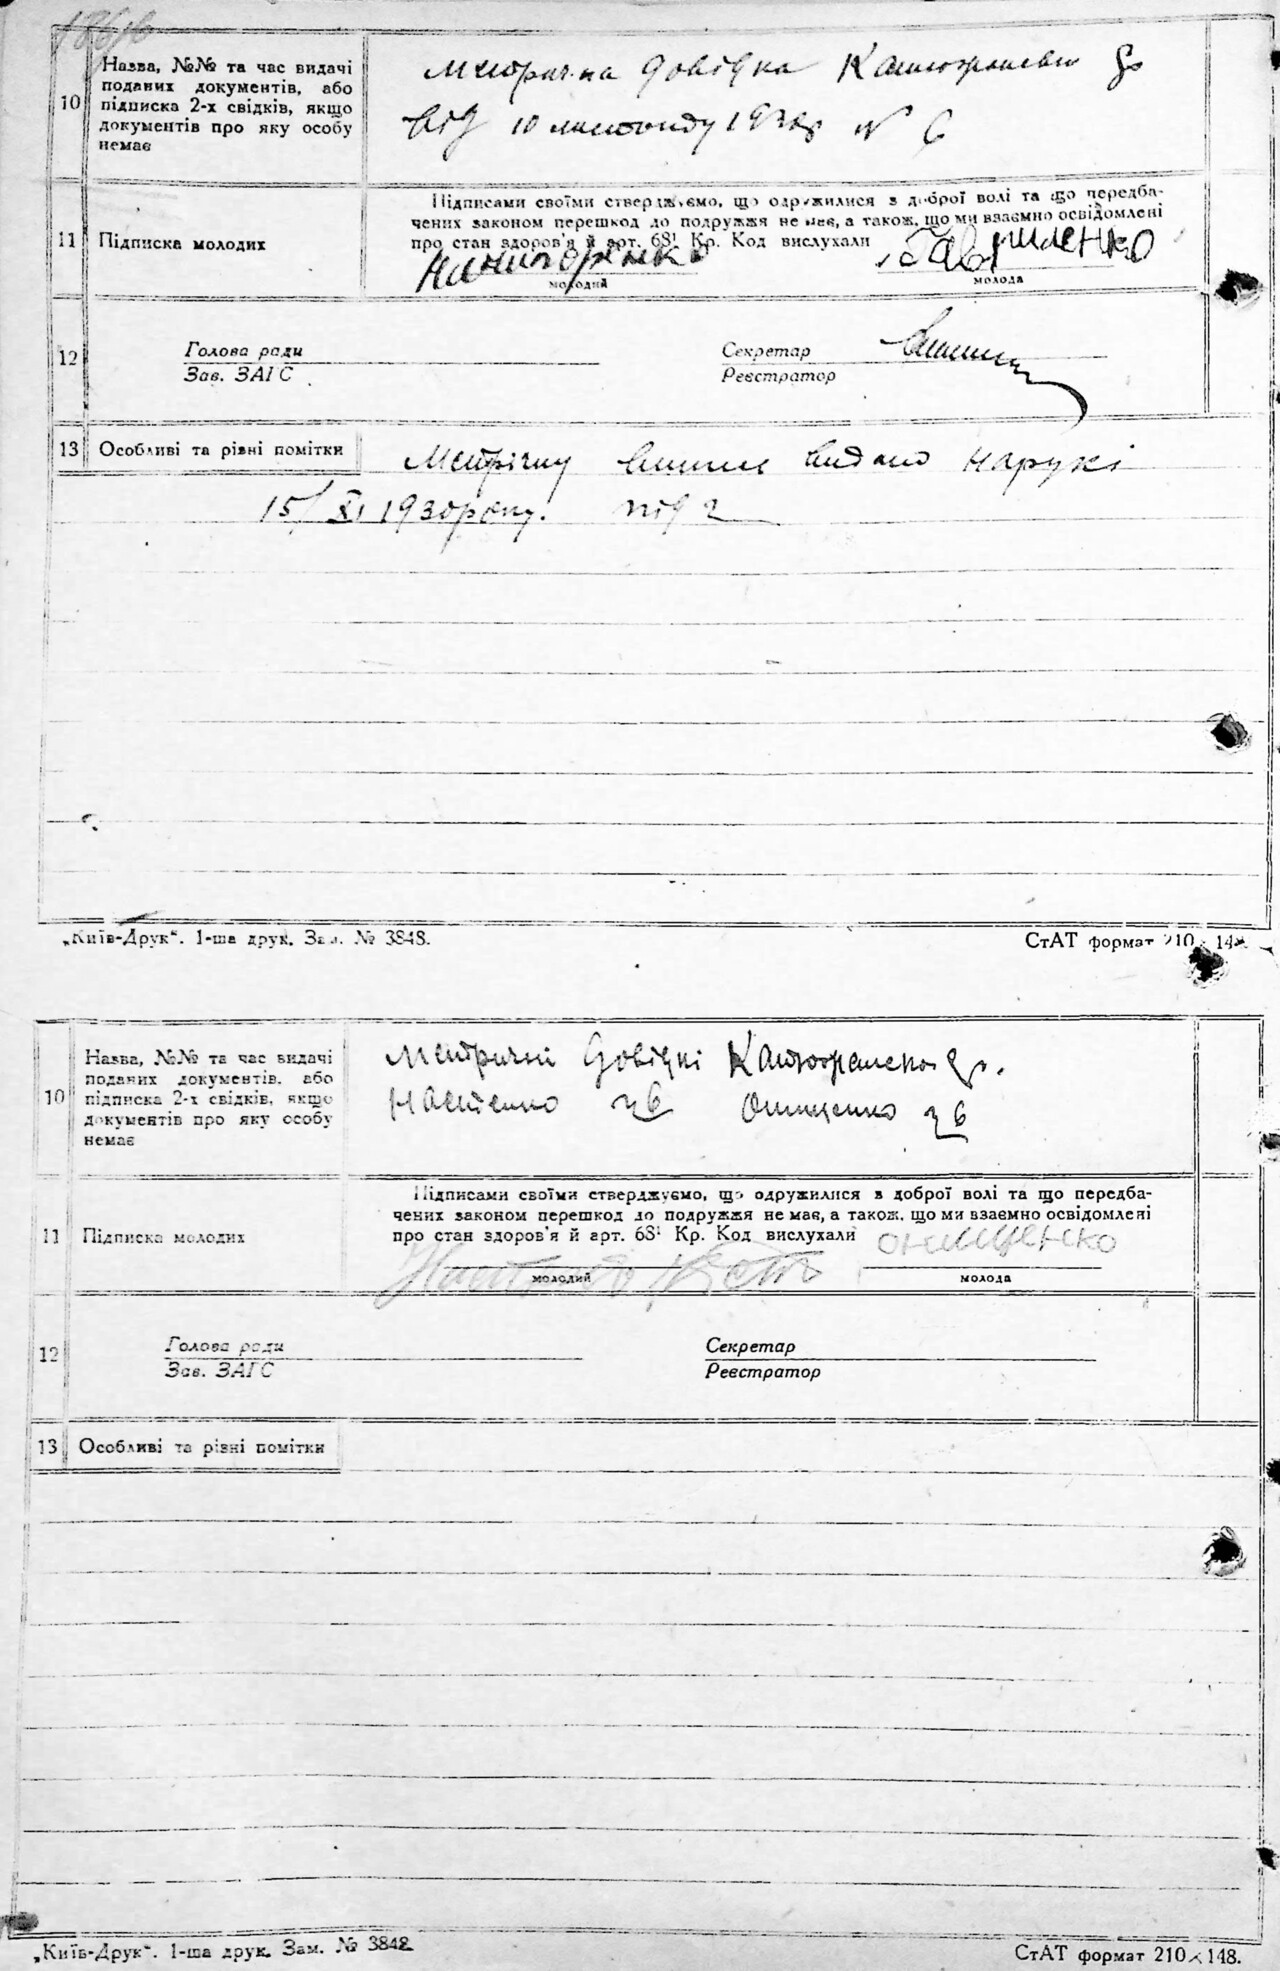 10
Назва, №№ та час видачі
поданих документів, або
підписка 2-х свідків, якщо
документів про яку особу
немає
Метрична довідка
від 10 листопаду 1930р N 6
11
Підписка молодих
Підписами своїми стверджуємо, що одружилися з доброї волі та що передба-
чених законом перешкод до подружжя не має, а також, що ми взаємно освідомлені
про стан здоров'я й арт. 68¹ Кр. Код вислухали
Гавриленко
молодий
молода
12
Голова ради
Зав. ЗАГС
Секретар
Реєстратор
13
Особливі та різні помітки
Метрічну випис видано нарукі
15/XI 1930 року. під 2
„Київ-Друк“. 1-ша друк. Зам. № 3848.
СтАТ формат 210 × 148.
10
Назва, №№ та час видачі
поданих документів, або
підписка 2-х свідків, якщо
документів про яку особу
немає
Метричні довідкі
Настенко Онищенко
11
Підписка молодих
Підписами своїми стверджуємо, що одружилися з доброї волі та що передба-
чених законом перешкод до подружжя не має, а також, що ми взаємно освідомлені
про стан здоров'я й арт. 68¹ Кр. Код вислухали
онищенко
молодий
молода
12
Голова ради
Зав. ЗАГС
Секретар
Реєстратор
13
Особливі та різні помітки
„Київ-Друк“. 1-ша друк. Зам. № 3848
СтАТ формат 210 × 148.